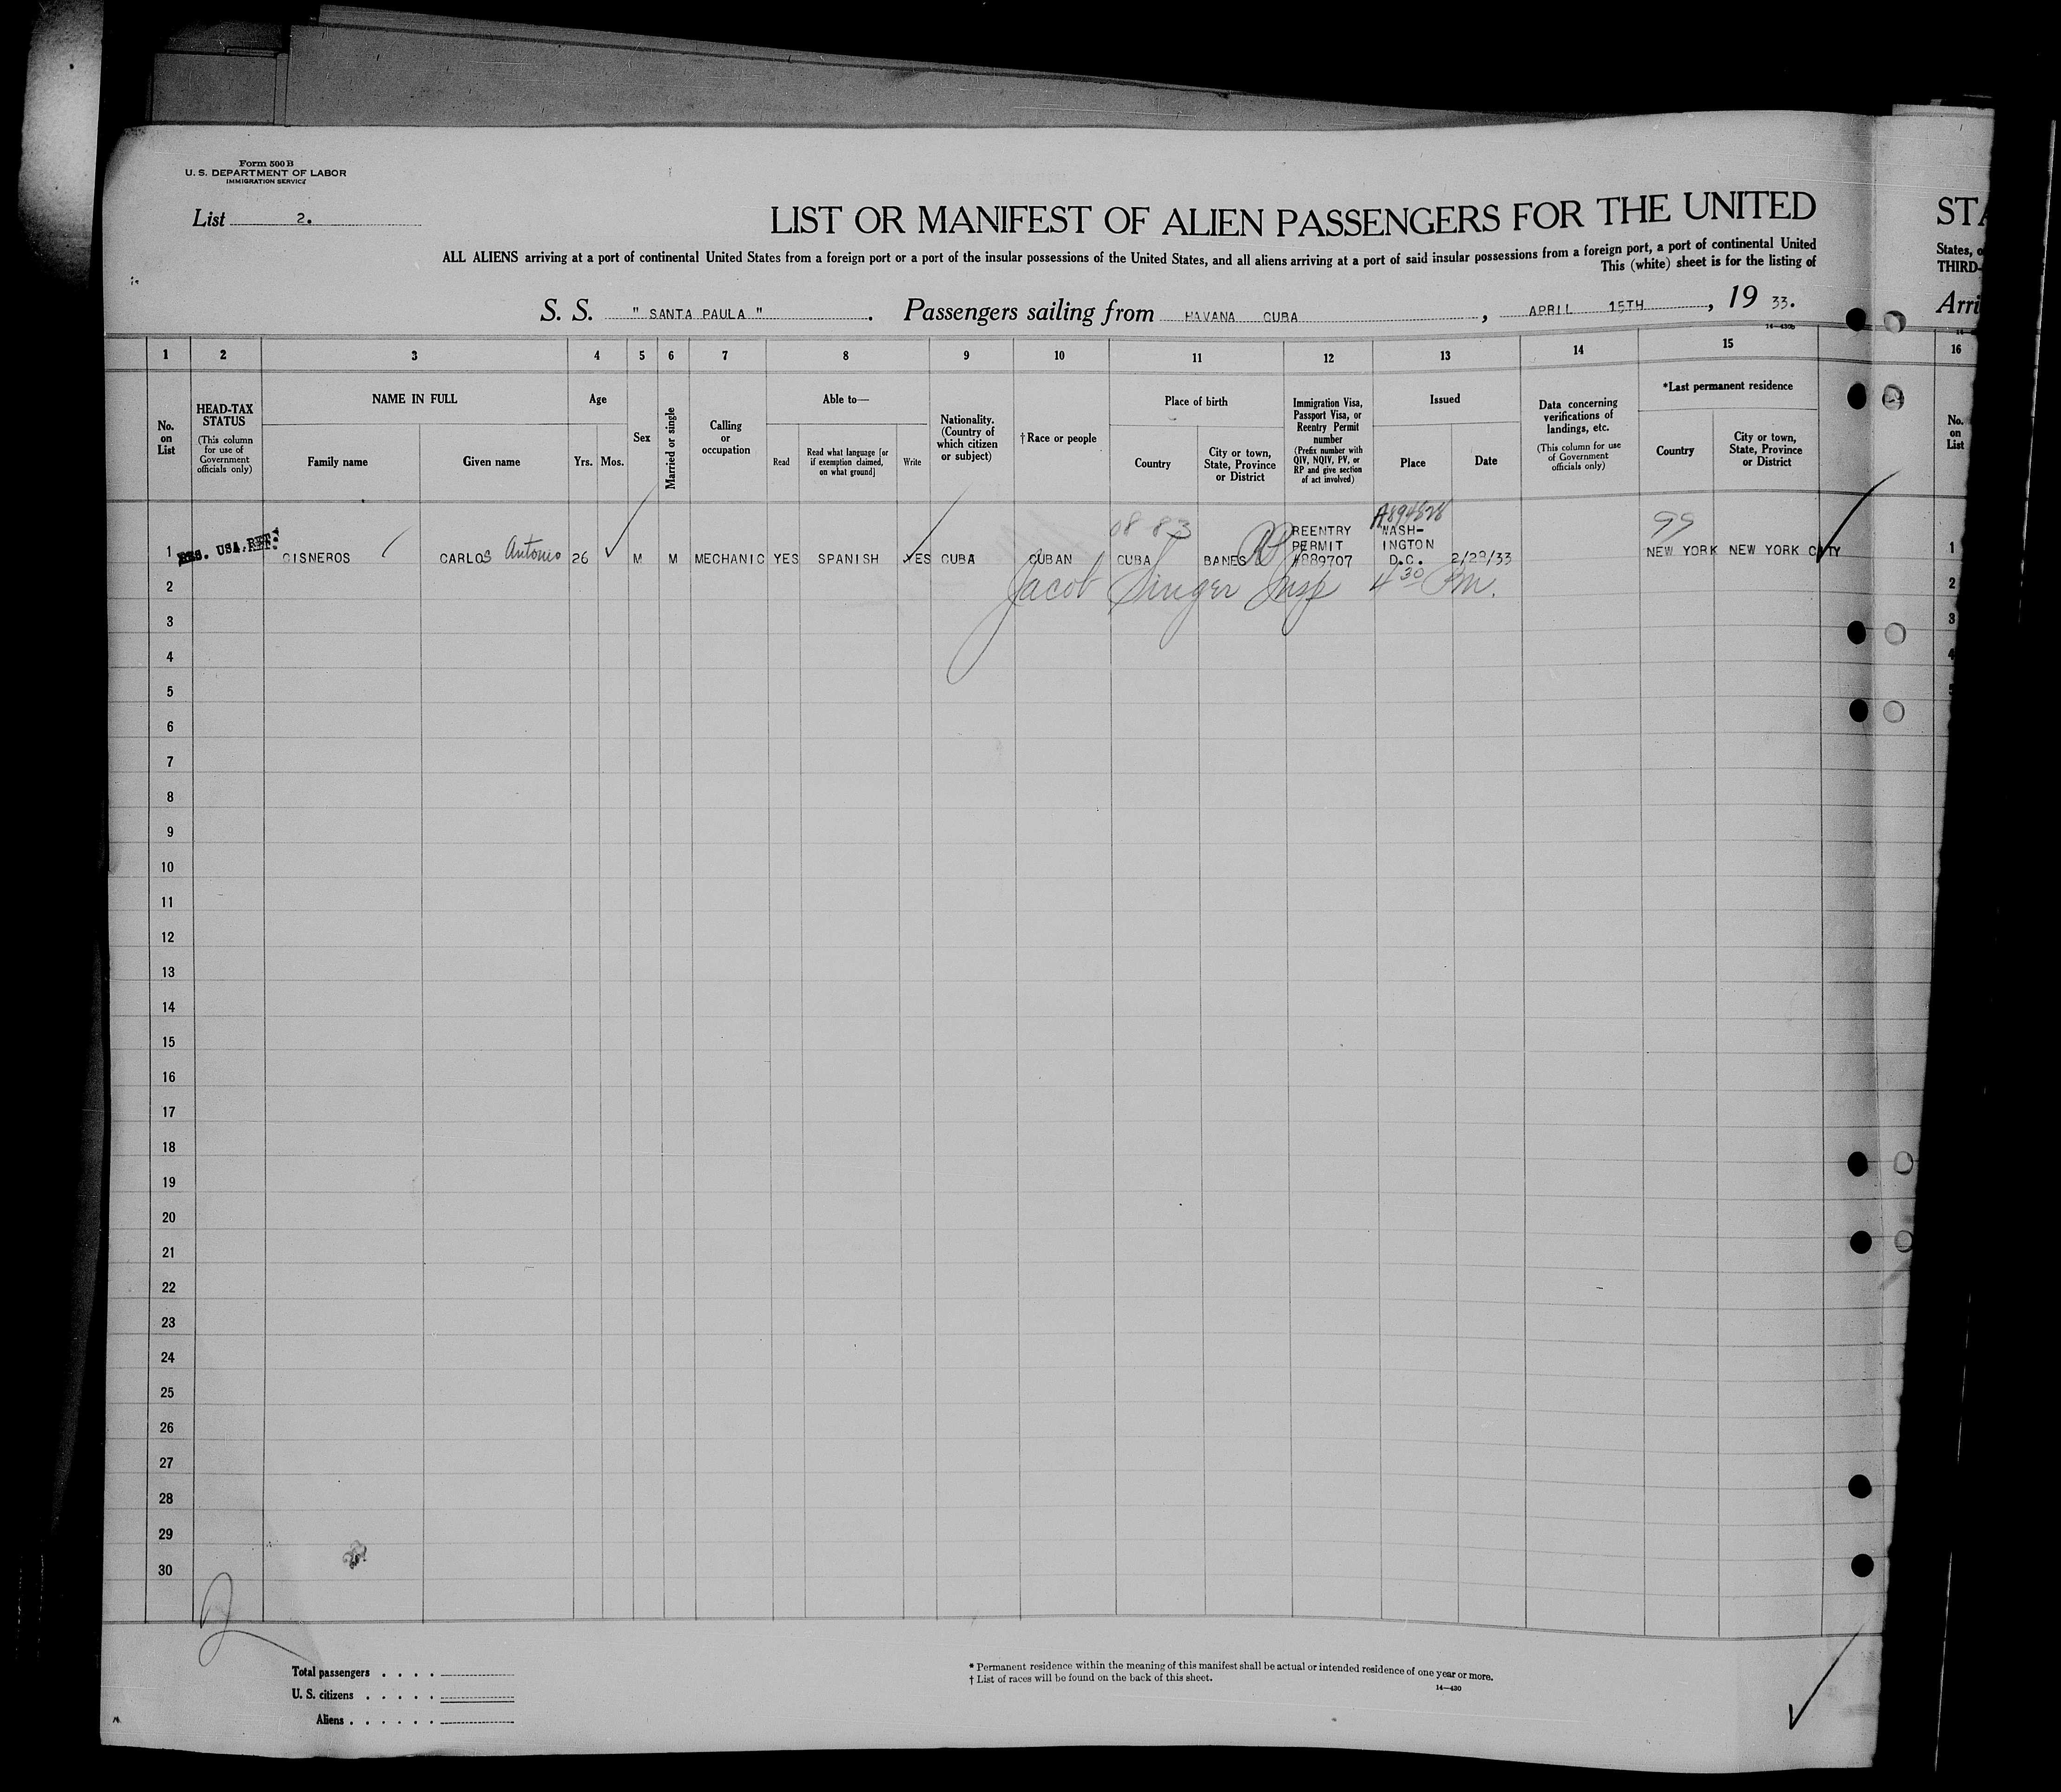 Form 500 B
U. S. DEPARTMENT OF LABOR
IMMIGRATION SERVICE
List 2.
LIST OR MANIFEST OF ALIEN PASSENGERS FOR THE UNITED
STA
ALL ALIENS arriving at a port of continental United States from a foreign port or a port of the insular possessions of the United States, and all aliens arriving at a port of said insular possessions from a foreign port, a port of continental United
States, o
This (white) sheet is for the listing of
THIRD-
S. S. " SANTA PAULA " . Passengers sailing from HAVANA CUBA , APRIL 15TH , 19 33.
Arri
14—430b
1 2 3 4 5 6 7 8 9 10 11 12 13 14 15 16
No. on List
HEAD-TAX STATUS (This column for use of Government officials only)
NAME IN FULL
Family name
Given name
Age
Yrs. Mos.
Sex
Married or single
Calling or occupation
Able to—
Read
Read what language [or if exemption claimed, on what ground]
Write
Nationality. (Country of which citizen or subject)
† Race or people
Place of birth
Country
City or town, State, Province or District
Immigration Visa, Passport Visa, or Reentry Permit number (Prefix number with QIV, NQIV, PV, or RP and give section of act involved)
Issued
Place
Date
Data concerning verifications of landings, etc. (This column for use of Government officials only)
*Last permanent residence
Country
City or town, State, Province or District
No. on List
08 83
A894828
99
1 RES. USA. RET. CISNEROS CARLOS Antonio 26 M M MECHANIC YES SPANISH YES CUBA CUBAN CUBA BANES RP REENTRY PERMIT #889707 WASH-INGTON D.C. 2/28/33 NEW YORK NEW YORK CITY 1
2 Jacob Singer Insp 4 30 Pm. 2
3 3
4 4
5 5
6
7
8
9
10
11
12
13
14
15
16
17
18
19
20
21
22
23
24
25
26
27
28
29
30
2
Total passengers . . . .
U. S. citizens . . . . .
Aliens . . . . . .
* Permanent residence within the meaning of this manifest shall be actual or intended residence of one year or more.
† List of races will be found on the back of this sheet.
14—430